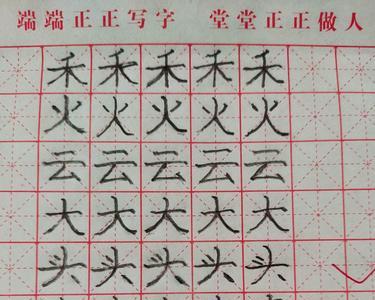 端端正正写字 堂堂正正做人
禾禾禾禾禾
火火火火火
云云云云云
大大大大大
头头头头头